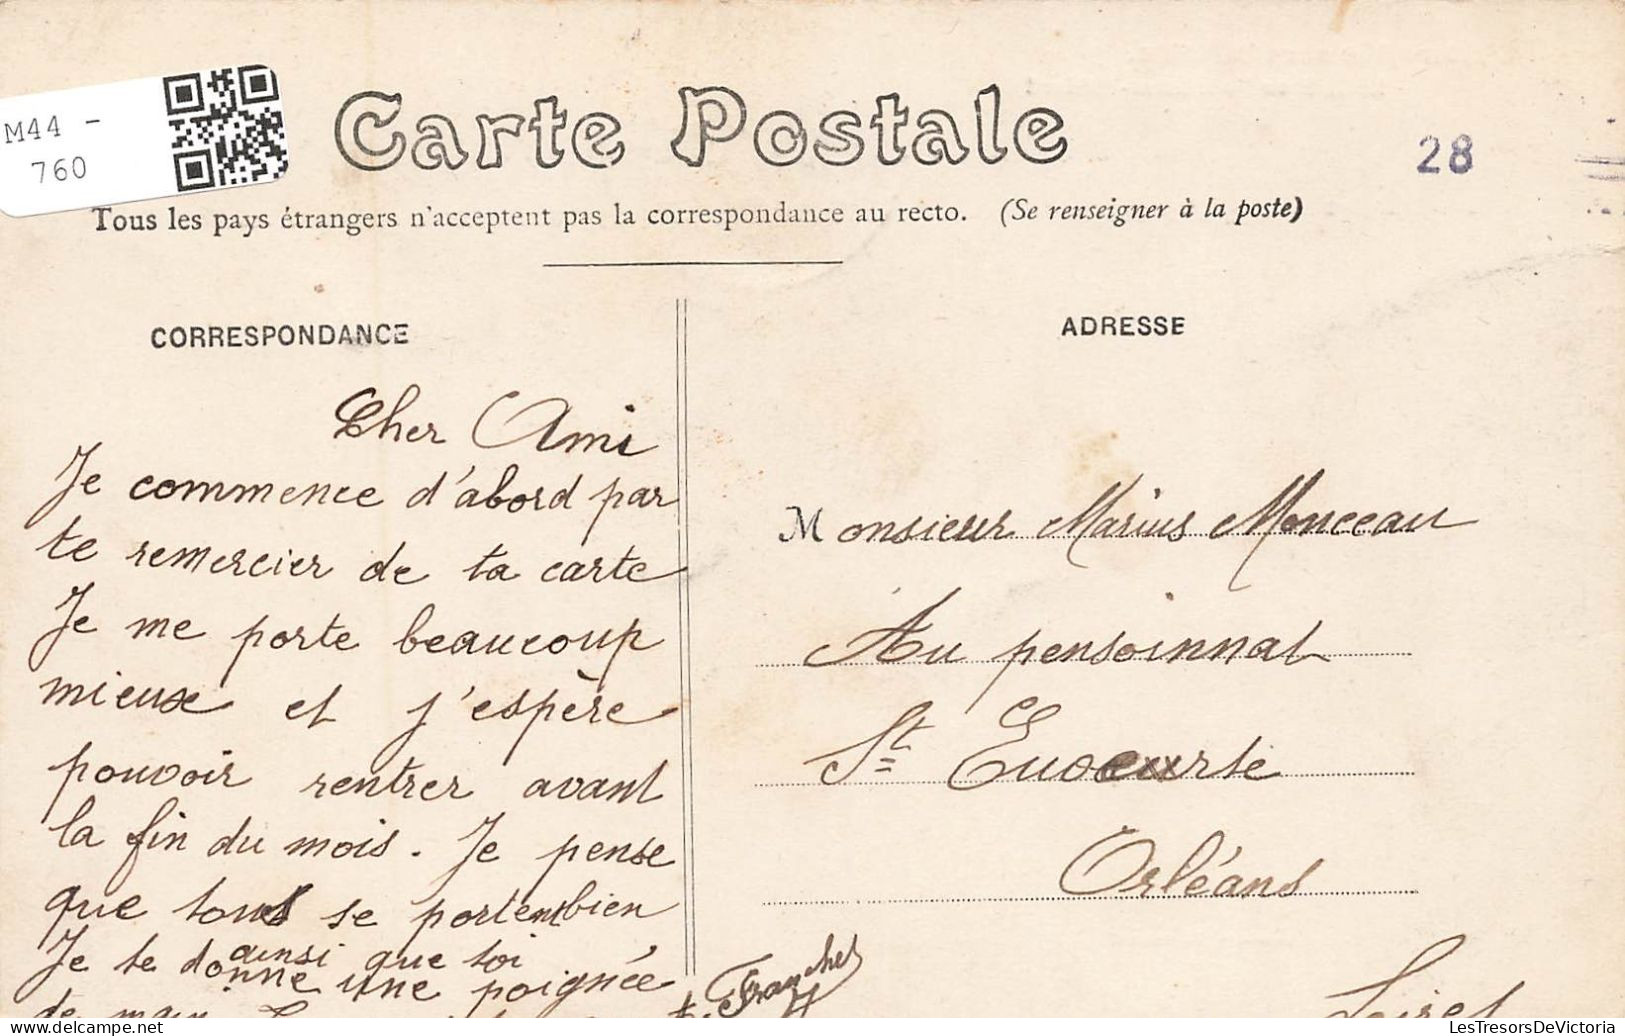 M44 -
760
Carte Postale
28
Tous les pays étrangers n'acceptent pas la correspondance au recto. (Se renseigner à la poste)
CORRESPONDANCE
Cher Ami
Je commence d'abord par
te remercier de ta carte
Je me porte beaucoup
mieux et j'espère
pouvoir rentrer avant
la fin du mois. Je pense
que tous se portent bien
ainsi que toi
Je te donne une poignée
de main
ADRESSE
Monsieur Marius Monceau
Au pensoinnat
St
Orléans
Loiret
LesTresorsDeVictoria